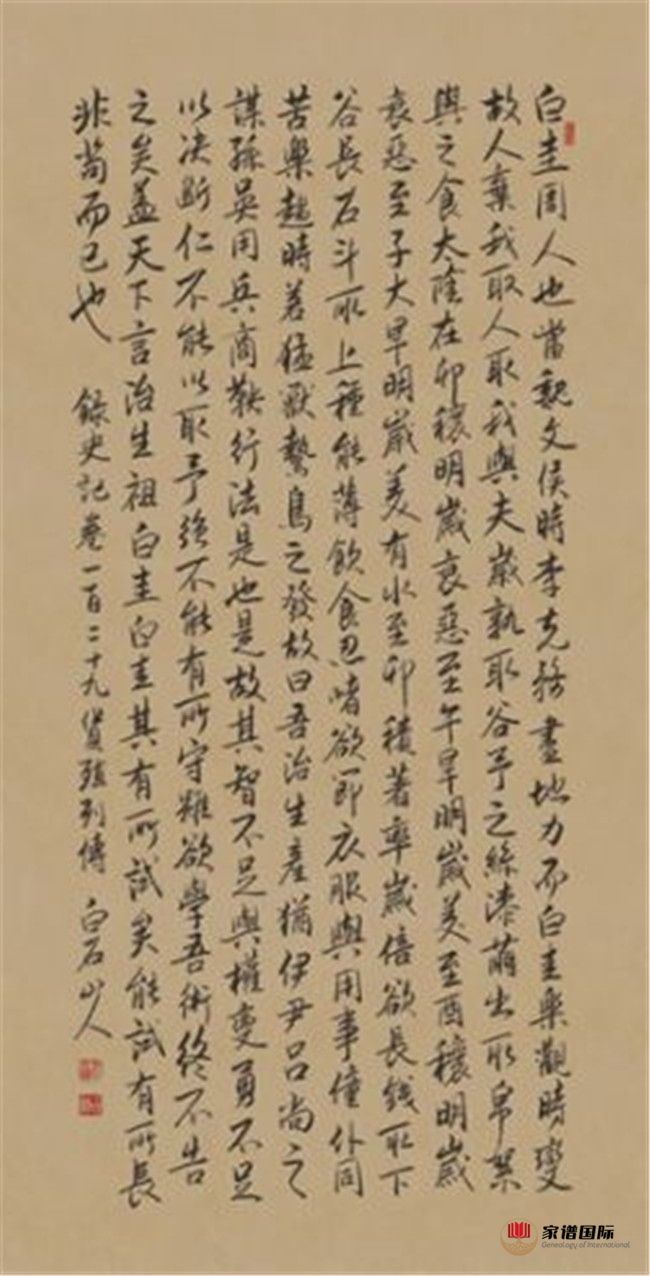 白圭周人也當魏文侯時李克務盡地力而白圭樂觀時變
故人棄我取人取我與夫歲孰取谷予之絲漆繭出取帛絮
與之食太陰在卯穰明歲衰惡至午旱明歲美至酉穰明歲
衰惡至子大旱明歲美有水至卯積著率歲倍欲長錢取下
谷長石斗取上種能薄飲食忍嗜欲節衣服與用事僮仆同
苦樂趨時若猛獸鷙鳥之發故曰吾治生產猶伊尹呂尚之
謀孫吳用兵商鞅行法是也是故其智不足與權變勇不足
以決斷仁不能以取予強不能有所守雖欲學吾術終不告
之矣蓋天下言治生祖白圭白圭其有所試矣能試有所長
非苟而已也 錄史記卷一百二十九貨殖列傳 白石山人
家谱国际
Genealogy of International